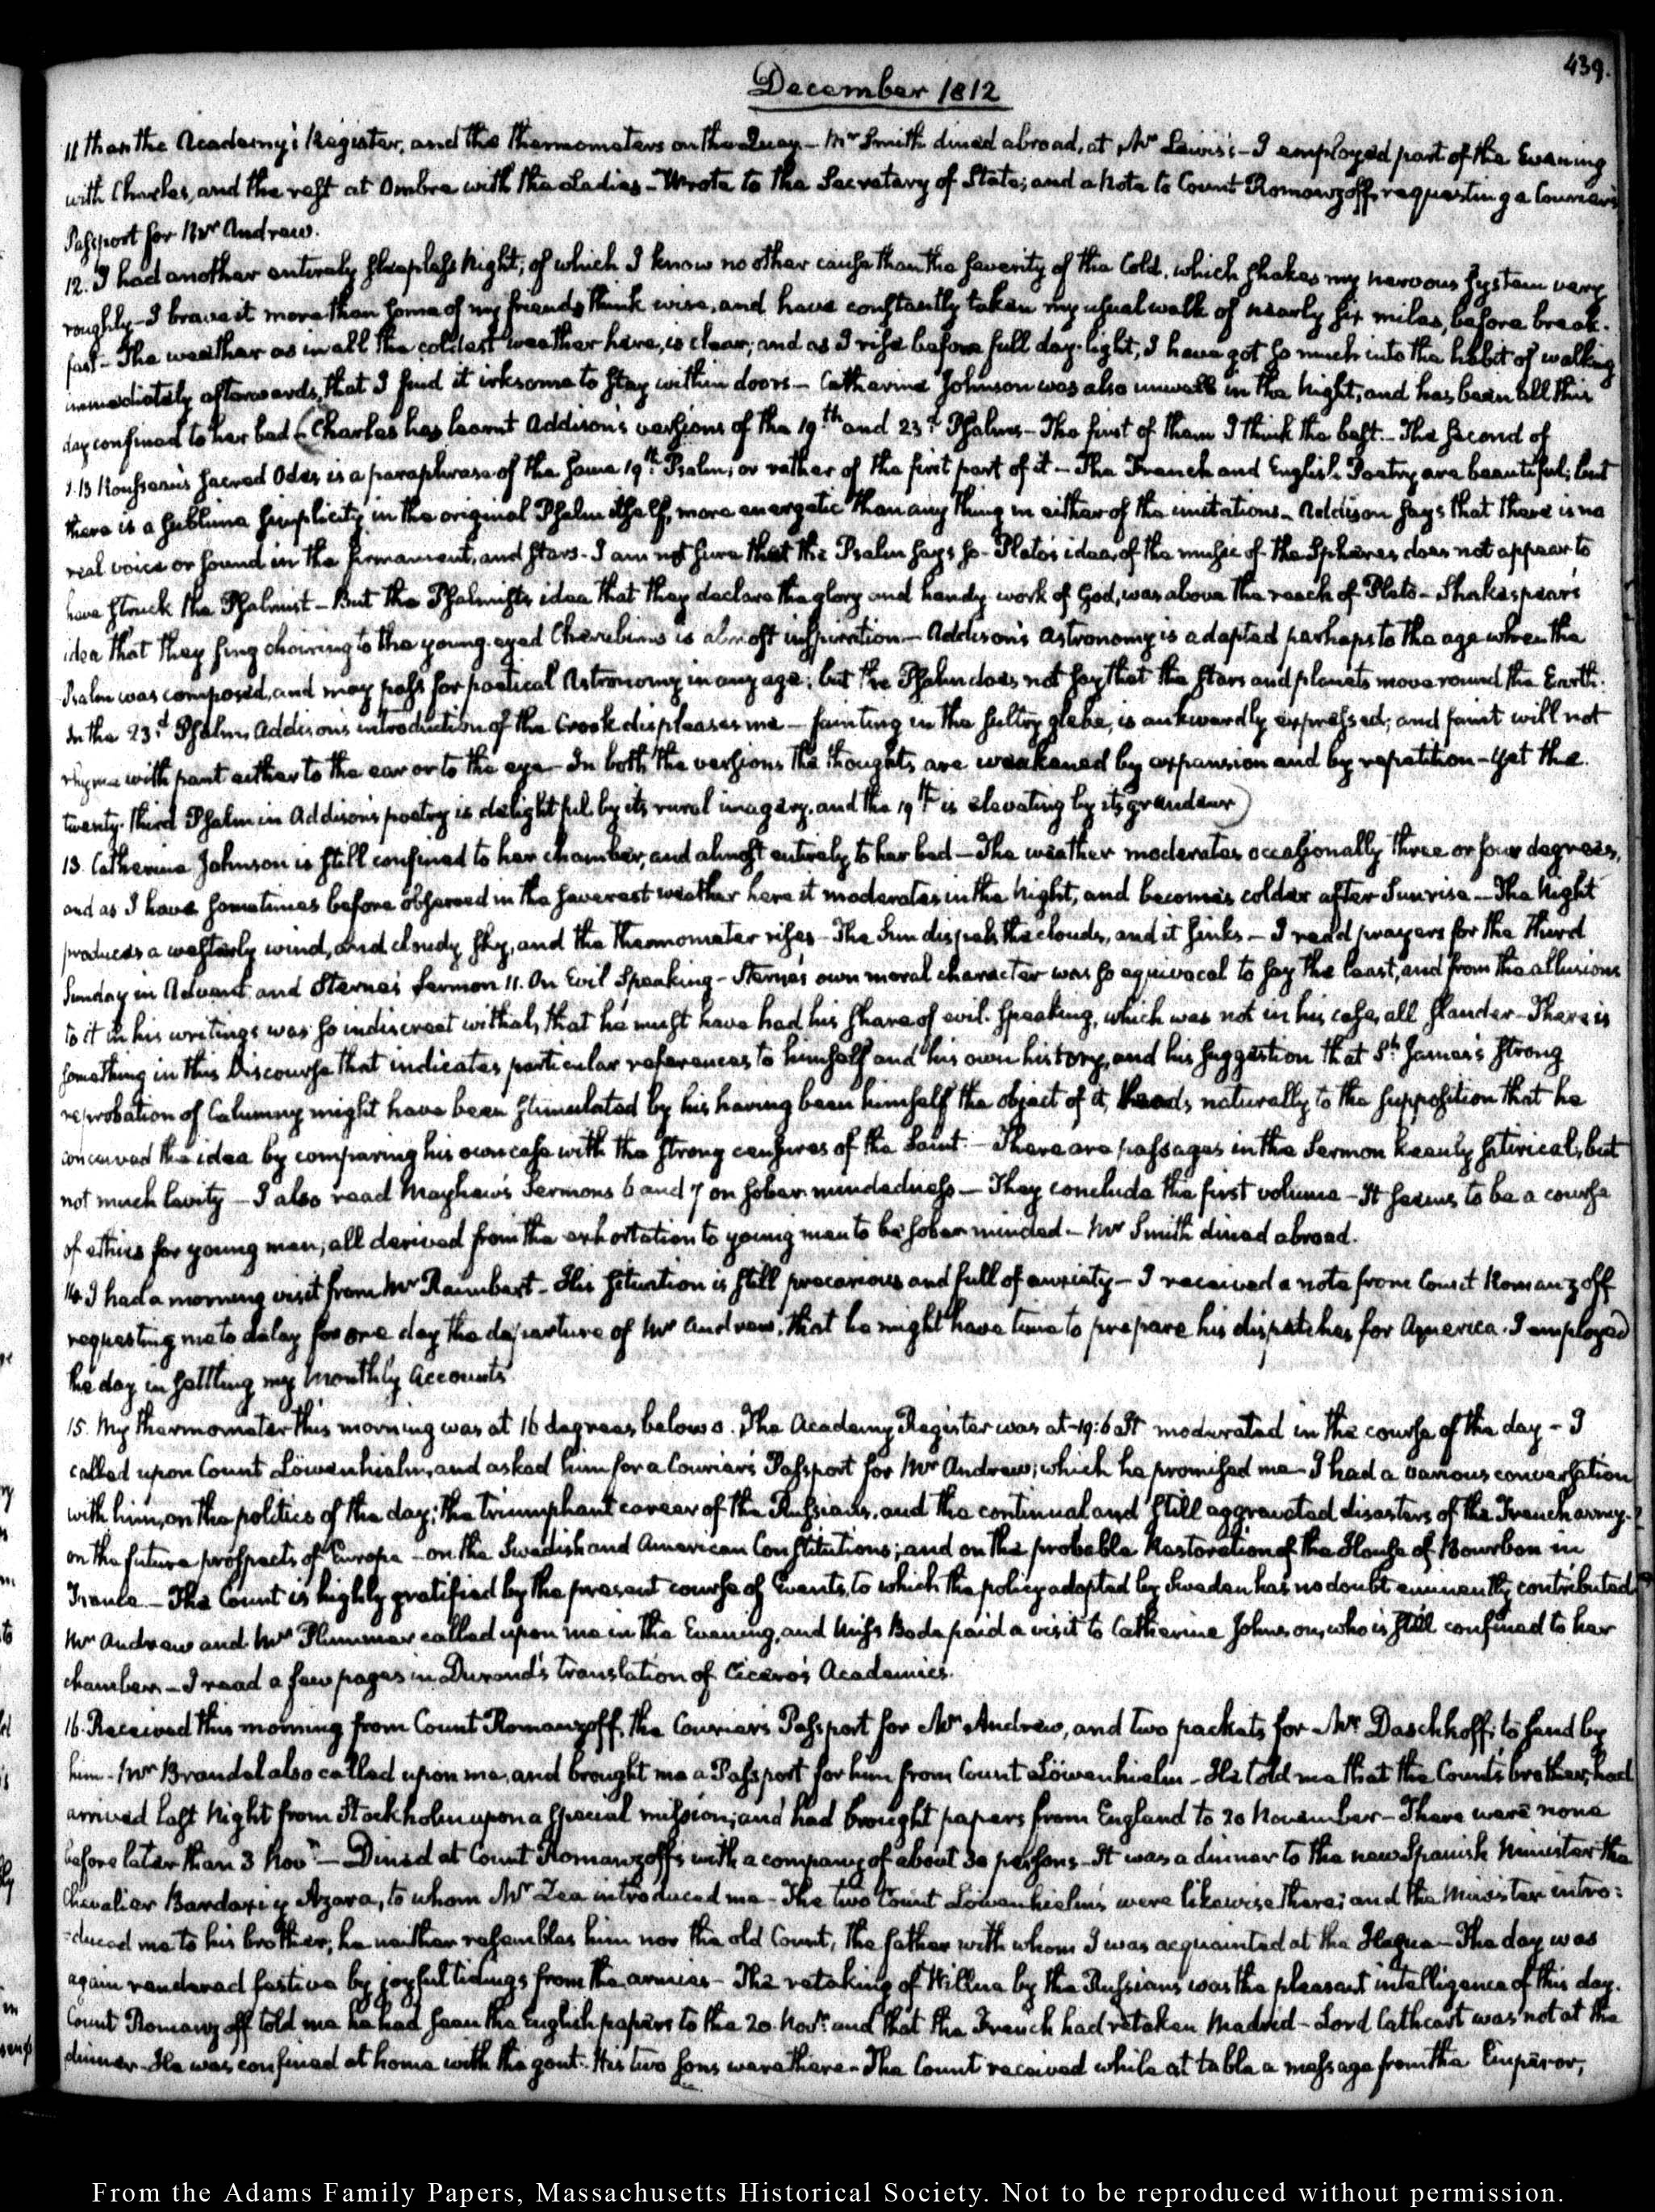 439.
December 1812
11 than the Academy's Register, and the thermometers on the Quay — Mr Smith dined abroad, at Mr Lewis's — I employed part of the Evening
with Charles, and the rest at Ombre with the Ladies — Wrote to the Secretary of State; and a Note to Count Romanzoff, requesting a Courier's
Passport for Mr Andrew.
12. I had another entirely sleepless Night; of which I know no other cause than the severity of the Cold, which shakes my nervous system very
roughly — I brave it more than some of my friends think wise, and have constantly taken my usual walk of nearly six miles, before break-
fast — The weather as in all the coldest weather here, is clear; and as I rise before full day-light, I have got so much into the habit of walking
immediately afterwards, that I find it irksome to stay within doors — Catherine Johnson was also unwell in the Night, and has been all this
day confined to her bed (Charles has learnt Addison's versions of the 19th and 23d Psalms — The first of them I think the best — The second of
J. B Rousseau's Sacred Odes is a paraphrase of the same 19th Psalm; or rather of the first part of it — The French and English Poetry are beautiful; but
there is a sublime simplicity in the original Psalm itself, more energetic than any thing in either of the imitations — Addison says that there is no
real voice or sound in the firmament, and stars — I am not sure that the Psalm says so — Plato's idea, of the music of the Spheres does not appear to
have struck the Psalmist — But the Psalmist's idea that they declare the glory and handy work of God, was above the reach of Plato — Shakespear's
idea that they sing choiring to the young-eyed Cherubims is almost inspiration — Addison's Astronomy is adapted perhaps to the age when the
Psalm was composed, and may pass for poetical Astronomy in any age; but the Psalm does not say that the stars and planets move round the Earth.
In the 23d Psalm, Addison's introduction of the Crook displeases me — fainting in the sultry glebe, is aukwardly expressed; and faint will not
rhyme with pant either to the ear or to the eye — In both the versions the thoughts are weakened by expansion and by repetition — Yet the
twenty-third Psalm in Addison's poetry is delightful by its rural imagery, and the 19th is elevating by its grandeur)
13. Catherine Johnson is still confined to her chamber, and almost entirely to her bed — The weather moderates occasionally three or four degrees,
and as I have sometimes before observed in the severest weather here it moderates in the Night, and becomes colder after Sunrise — The Night
produces a westerly wind, and cloudy sky, and the thermometer rises — The Sun dispels the clouds, and it sinks — I read prayers for the third
Sunday in Advent and Sterne's Sermon 11. On Evil Speaking — Sterne's own moral character was so equivocal to say the least, and from the allusions
to it in his writings was so indiscreet withal, that he must have had his share of evil-speaking, which was not in his case, all slander — There is
something in this Discourse that indicates particular references to himself and his own history, and his suggestion that St James's strong
reprobation of Calumny might have been stimulated by his having been himself the object of it, leads naturally to the supposition that he
conceived the idea by comparing his own case with the strong censures of the Saint — There are passages in the Sermon keenly satirical, but
not much levity — I also read Mayhew's Sermons 6 and 7 on sober-mindedness — They conclude the first volume — It seems to be a course
of ethics for young men, all derived from the exhortation to young men to be sober minded — Mr Smith dined abroad.
14. I had a morning visit from Mr Raimbert — His situation is still precarious and full of anxiety — I received a note from Count Romanzoff
requesting me to delay for one day the departure of Mr Andrew, that he might have time to prepare his dispatches for America. I employed
the day in settling my Monthly Accounts
15. My thermometer this morning was at 16 degrees below 0. The Academy Register was at -19:6 It moderated in the course of the day — I
called upon Count Löwenhielm, and asked him for a Courier's Passport for Mr Andrew; which he promised me — I had a various conversation
with him, on the politics of the day; the triumphant career of the Russians, and the continual and still aggravated disasters of the French army.
on the future prospects of Europe — on the Swedish and American Constitutions; and on the probable Restoration of the House of Bourbon in
France — The Count is highly gratified by the present course of Events, to which the policy adopted by Sweden has no doubt eminently contributed
Mr Andrew and Mr Plummer called upon me in the Evening, and Miss Bode paid a visit to Catherine Johnson, who is still confined to her
chamber — I read a few pages in Durand's translation of Cicero's Academics.
16. Received this morning from Count Romanzoff, the Courier's Passport for Mr Andrew, and two packets for Mr Daschkoff; to send by
him — Mr Brandel also called upon me, and brought me a Passport for him from Count Löwenhielm — He told me that the Count's brother, had
arrived last Night from Stockholm upon a special mission; and had brought papers from England to 20 November — There were none
before later than 3 Novr — Dined at Count Romanzoff's with a company of about 30 persons — It was a dinner to the new Spanish Minister the
Chevalier Bardaxi y Azara, to whom Mr Zea introduced me — The two Count Löwenhielms were likewise there; and the Minister intro:
:duced me to his brother; he neither resembles him nor the old Count, the father with whom I was acquainted at the Hague — The day was
again rendered festive by joyful tidings from the armies — The retaking of Willna by the Russians was the pleasant intelligence of this day.
Count Romanzoff told me he had seen the English papers to the 20. Novr and that the French had retaken Madrid — Lord Cathcart was not at the
dinner — He was confined at home with the gout — His two sons were there — The Count received while at table a message from the Emperor,
From the Adams Family Papers, Massachusetts Historical Society. Not to be reproduced without permission.